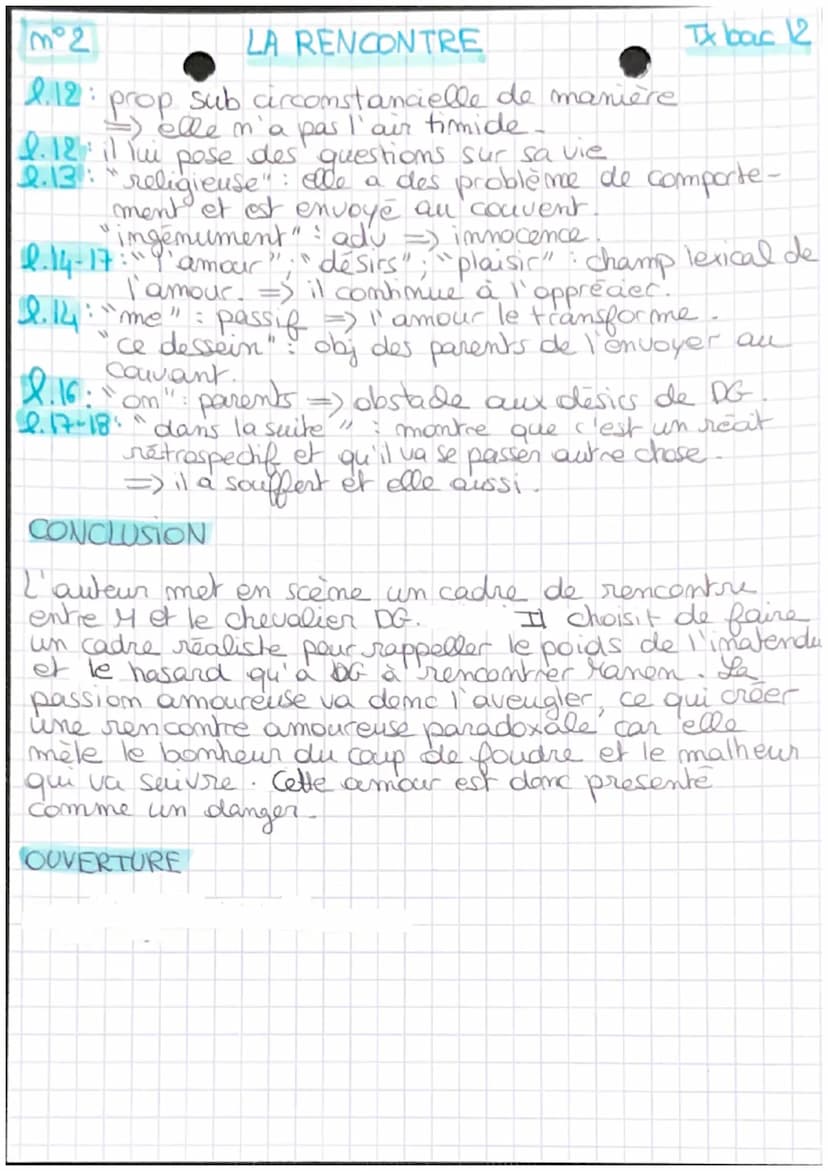 n°2 LA RENCONTRE Tx bac 12
l.12 : prop sub circonstancielle de manière
=> elle n'a pas l'air timide.
l.12 : il lui pose des questions sur sa vie
l.13 : "religieuse" : elle a des problème de comporte-
ment et est envoyé au couvent.
"ingénument" : adv => innocence.
l.14-17 : "l'amour" ; "désirs" ; "plaisir" : champ lexical de
l'amour. => il continue à l'apprécier.
l.14 : "me" : passif => l'amour le transforme.
"ce dessein" : obj des parents de l'envoyer au
couvant.
l.16 : "on" : parents => obstacle aux désirs de DG.
l.17-18 : "dans la suite" : montre que c'est un récit
rétrospectif et qu'il va se passer autre chose.
=> il a souffert et elle aussi.
CONCLUSION
L'auteur met en scène un cadre de rencontre
entre M et le chevalier DG. Il choisit de faire
un cadre réaliste pour rappeller le poids de l'inatendu
et le hasard qu'a DG à rencontrer Manon. La
passion amoureuse va donc l'aveugler, ce qui créer
une rencontre amoureuse paradoxale car elle
mêle le bonheur du coup de foudre et le malheur
qui va suivre. Cette amour est donc présenté
comme un danger.
OUVERTURE